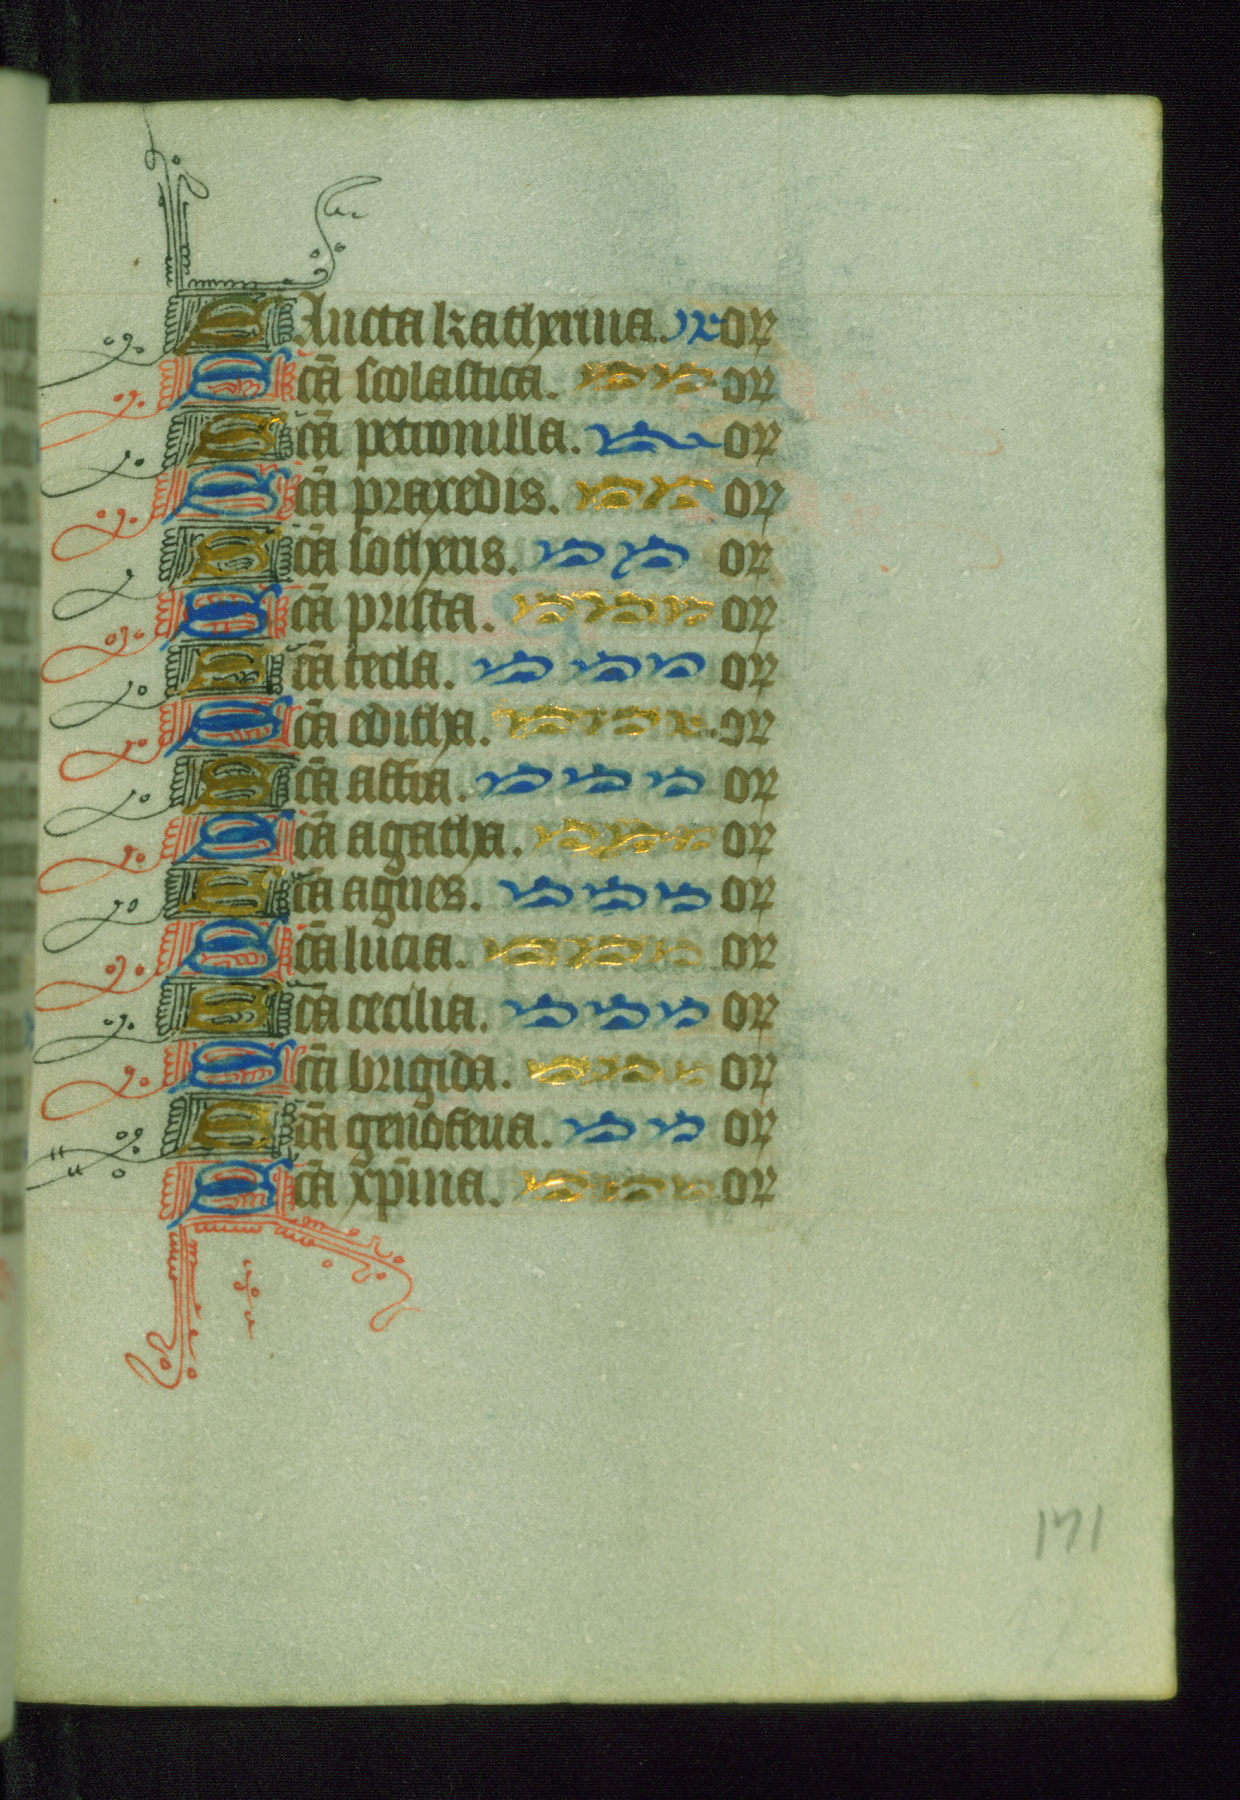 SAncta katherina. or
Scā scolastica. or
Scā petronilla. or
Scā praxedis. or
Scā sotheris. or
Scā prisca. or
Scā tecla. or
Scā editha. or
Scā affra. or
Scā agatha. or
Scā agnes. or
Scā lucia. or
Scā cecilia. or
Scā brigida. or
Scā genofeua. or
Scā xp̄ina. or
171